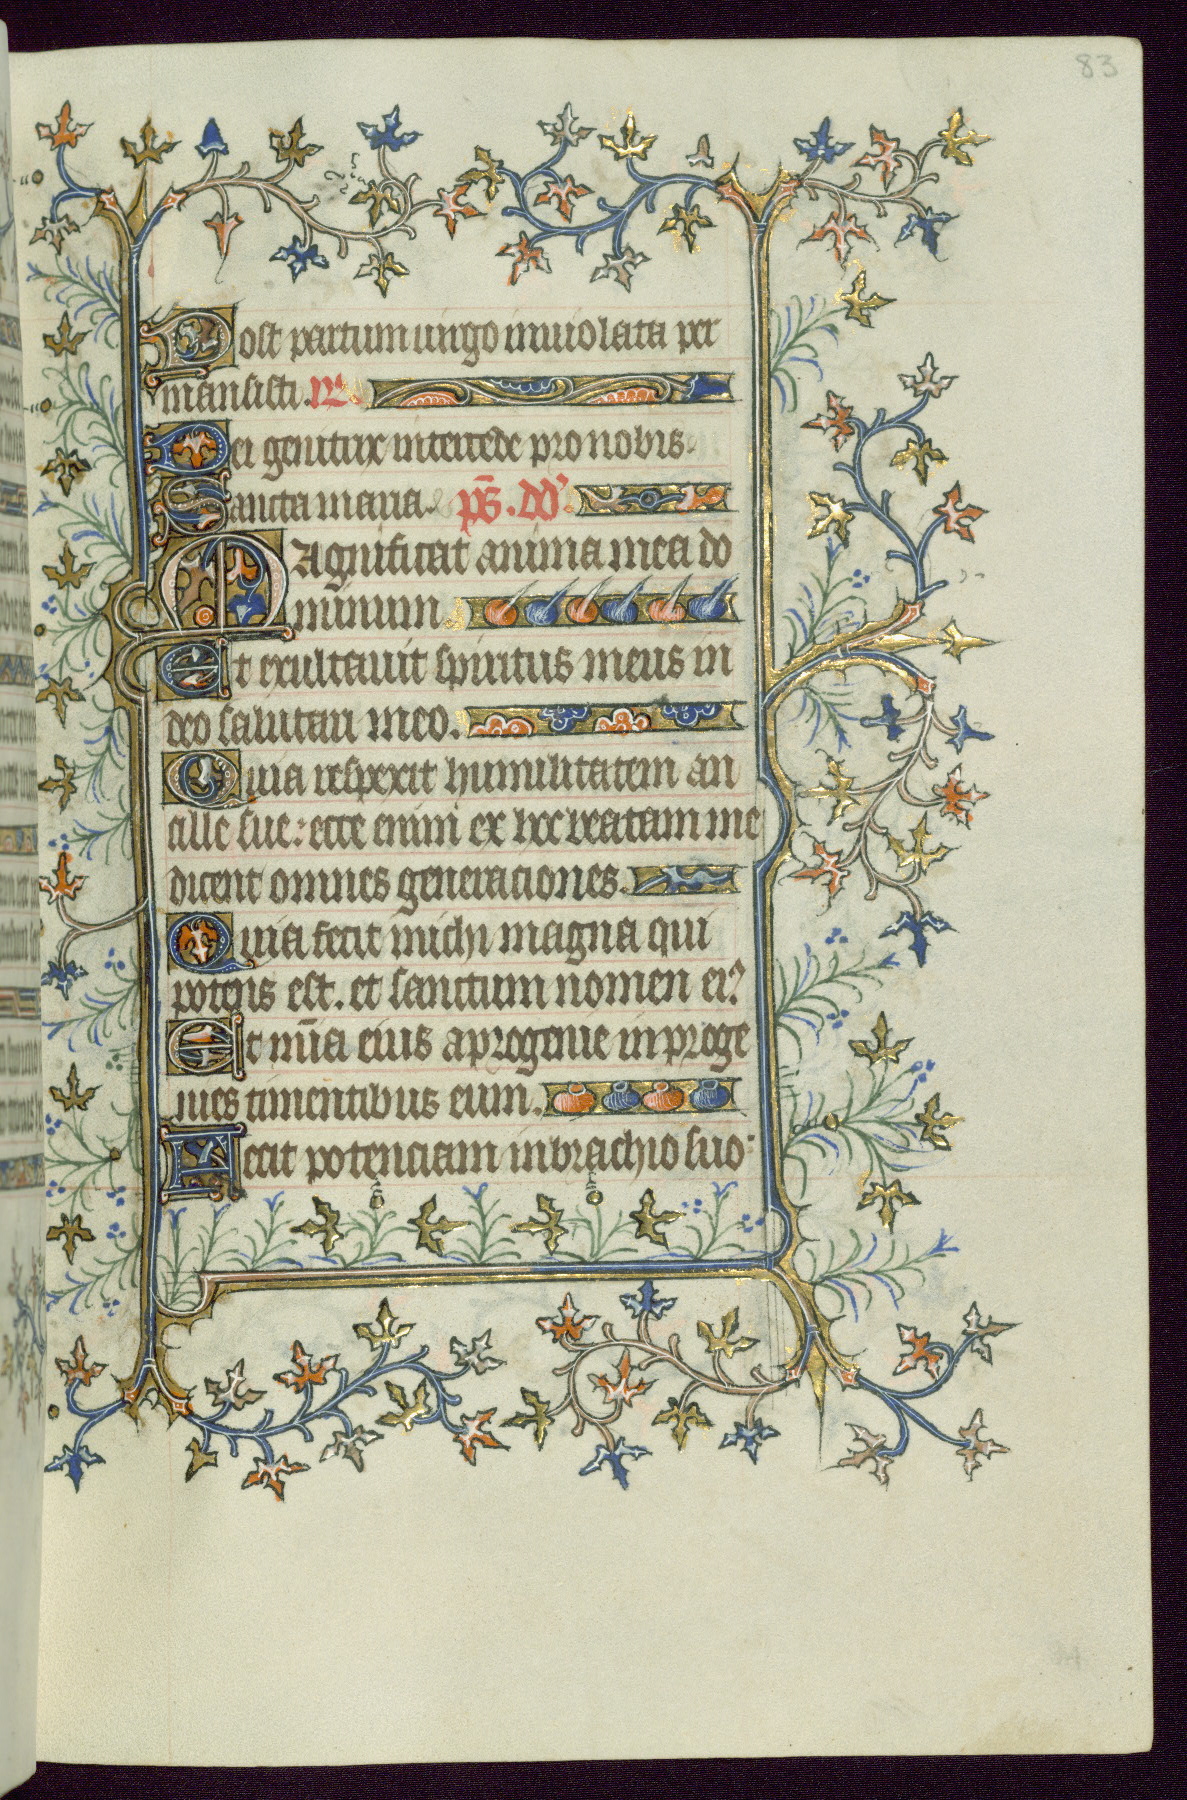 83
Post partum uirgo inuiolata per
mansisti. R.
Dei genitrix intercede pro nobis.
Sancta maria. ps. dd'.
Magnificat anima mea do
minum.
Et exultauit spiritus meus in
deo salutari meo.
Quia respexit humilitatem an
cille sue: ecce enim ex hoc beatam me
dicent omnes generaciones.
Quia fecit michi magna qui
potens est. et sanctum nomen ei9
Et mīa eius aprogenie in proge
nies timentibus eum.
Fecit potenciam in brachio suo: